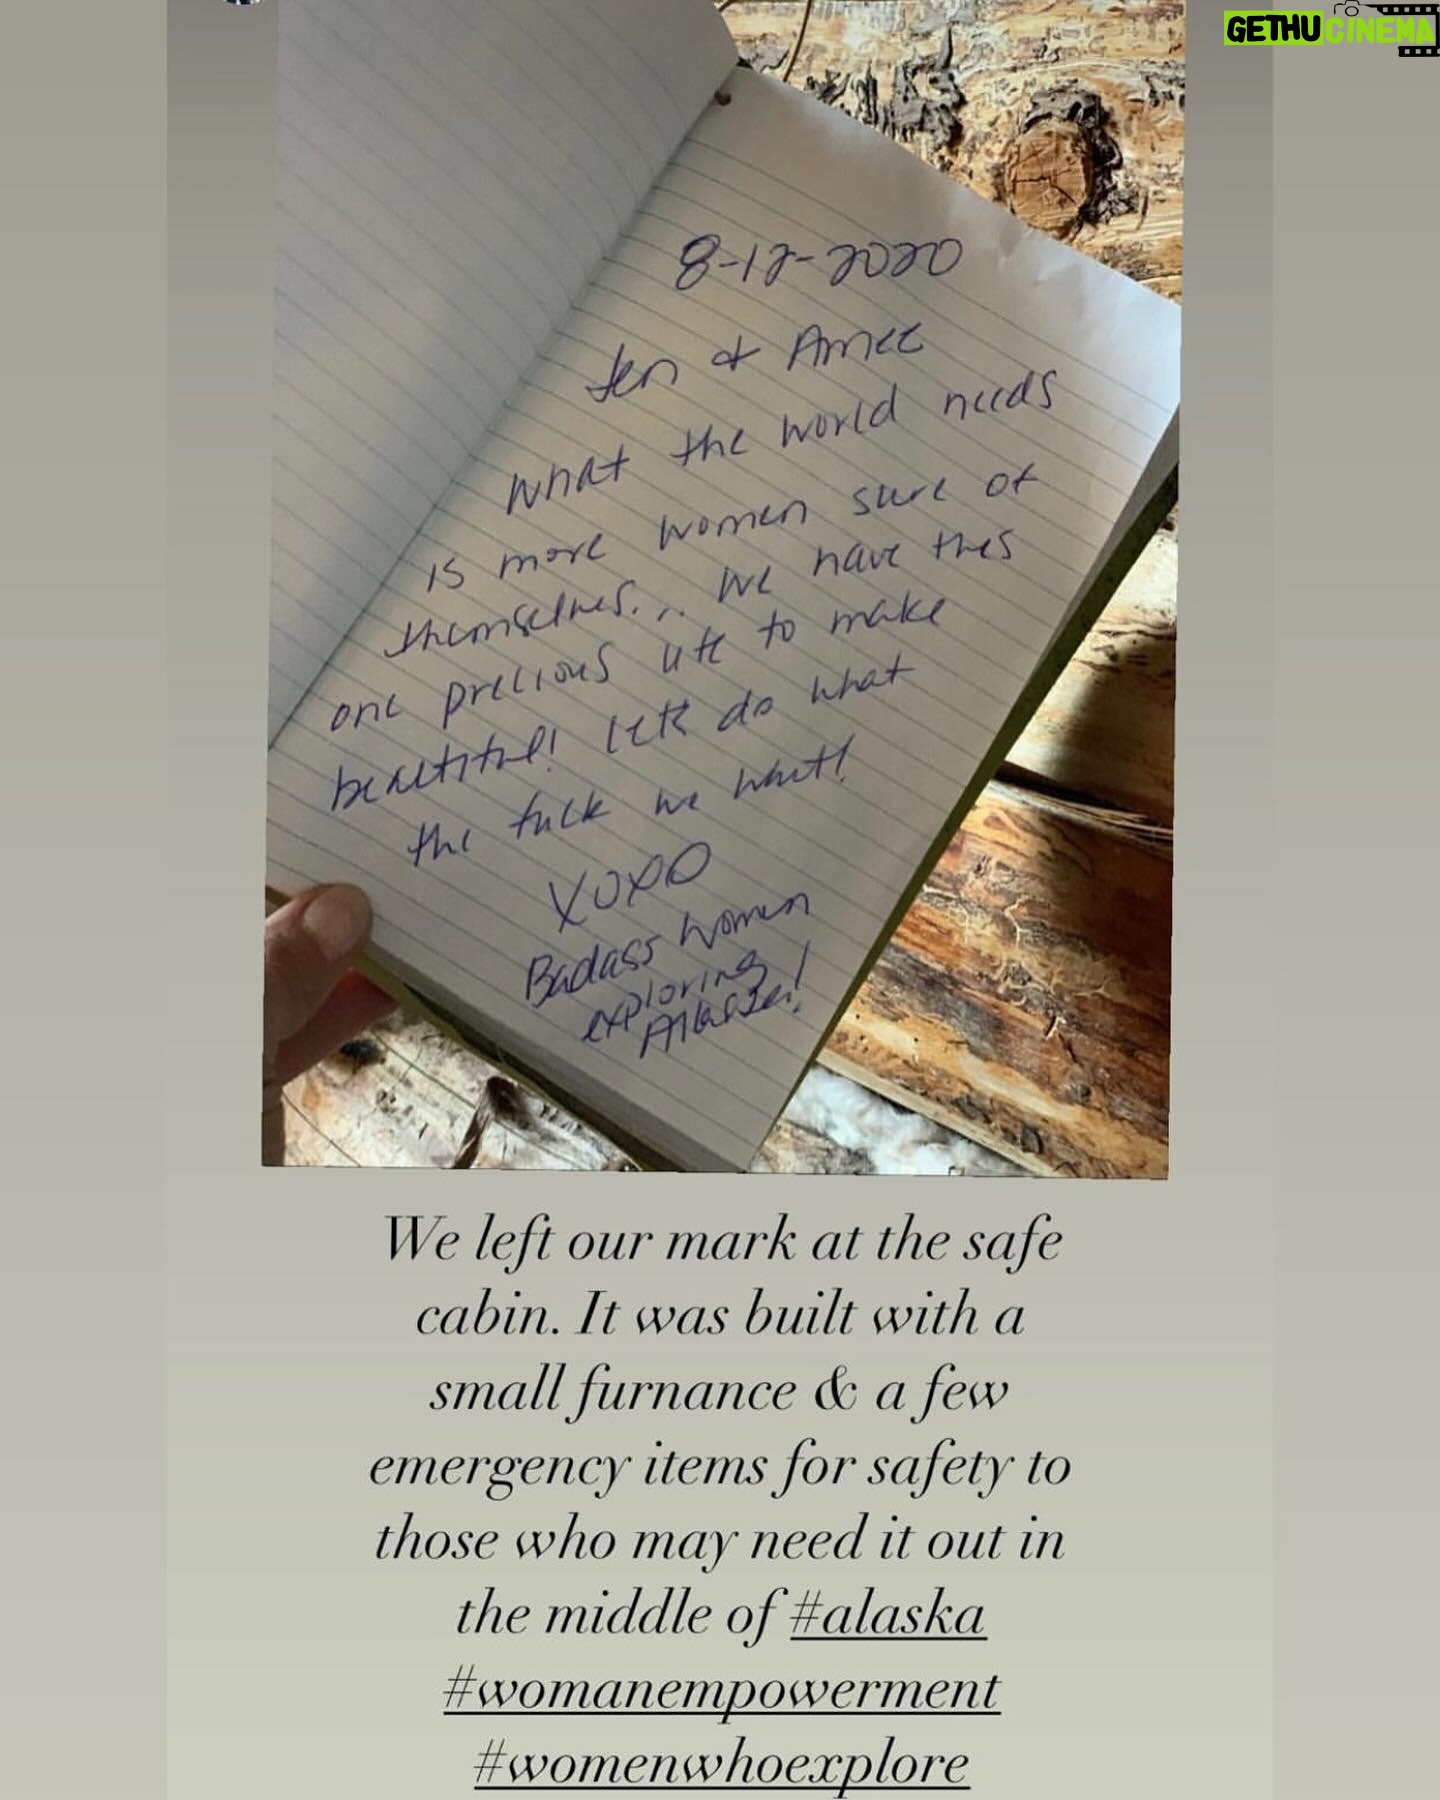 GETHUCINEMA
8-12-2020
Jen & Amee
What the world needs
is more women sure of
themselves... We have this
one precious life to make
beautiful! Let's do what
the fuck we want!
XOXO
Badass women
exploring
Alaska!
We left our mark at the safe
cabin. It was built with a
small furnance & a few
emergency items for safety to
those who may need it out in
the middle of #alaska
#womanempowerment
#womenwhoexplore